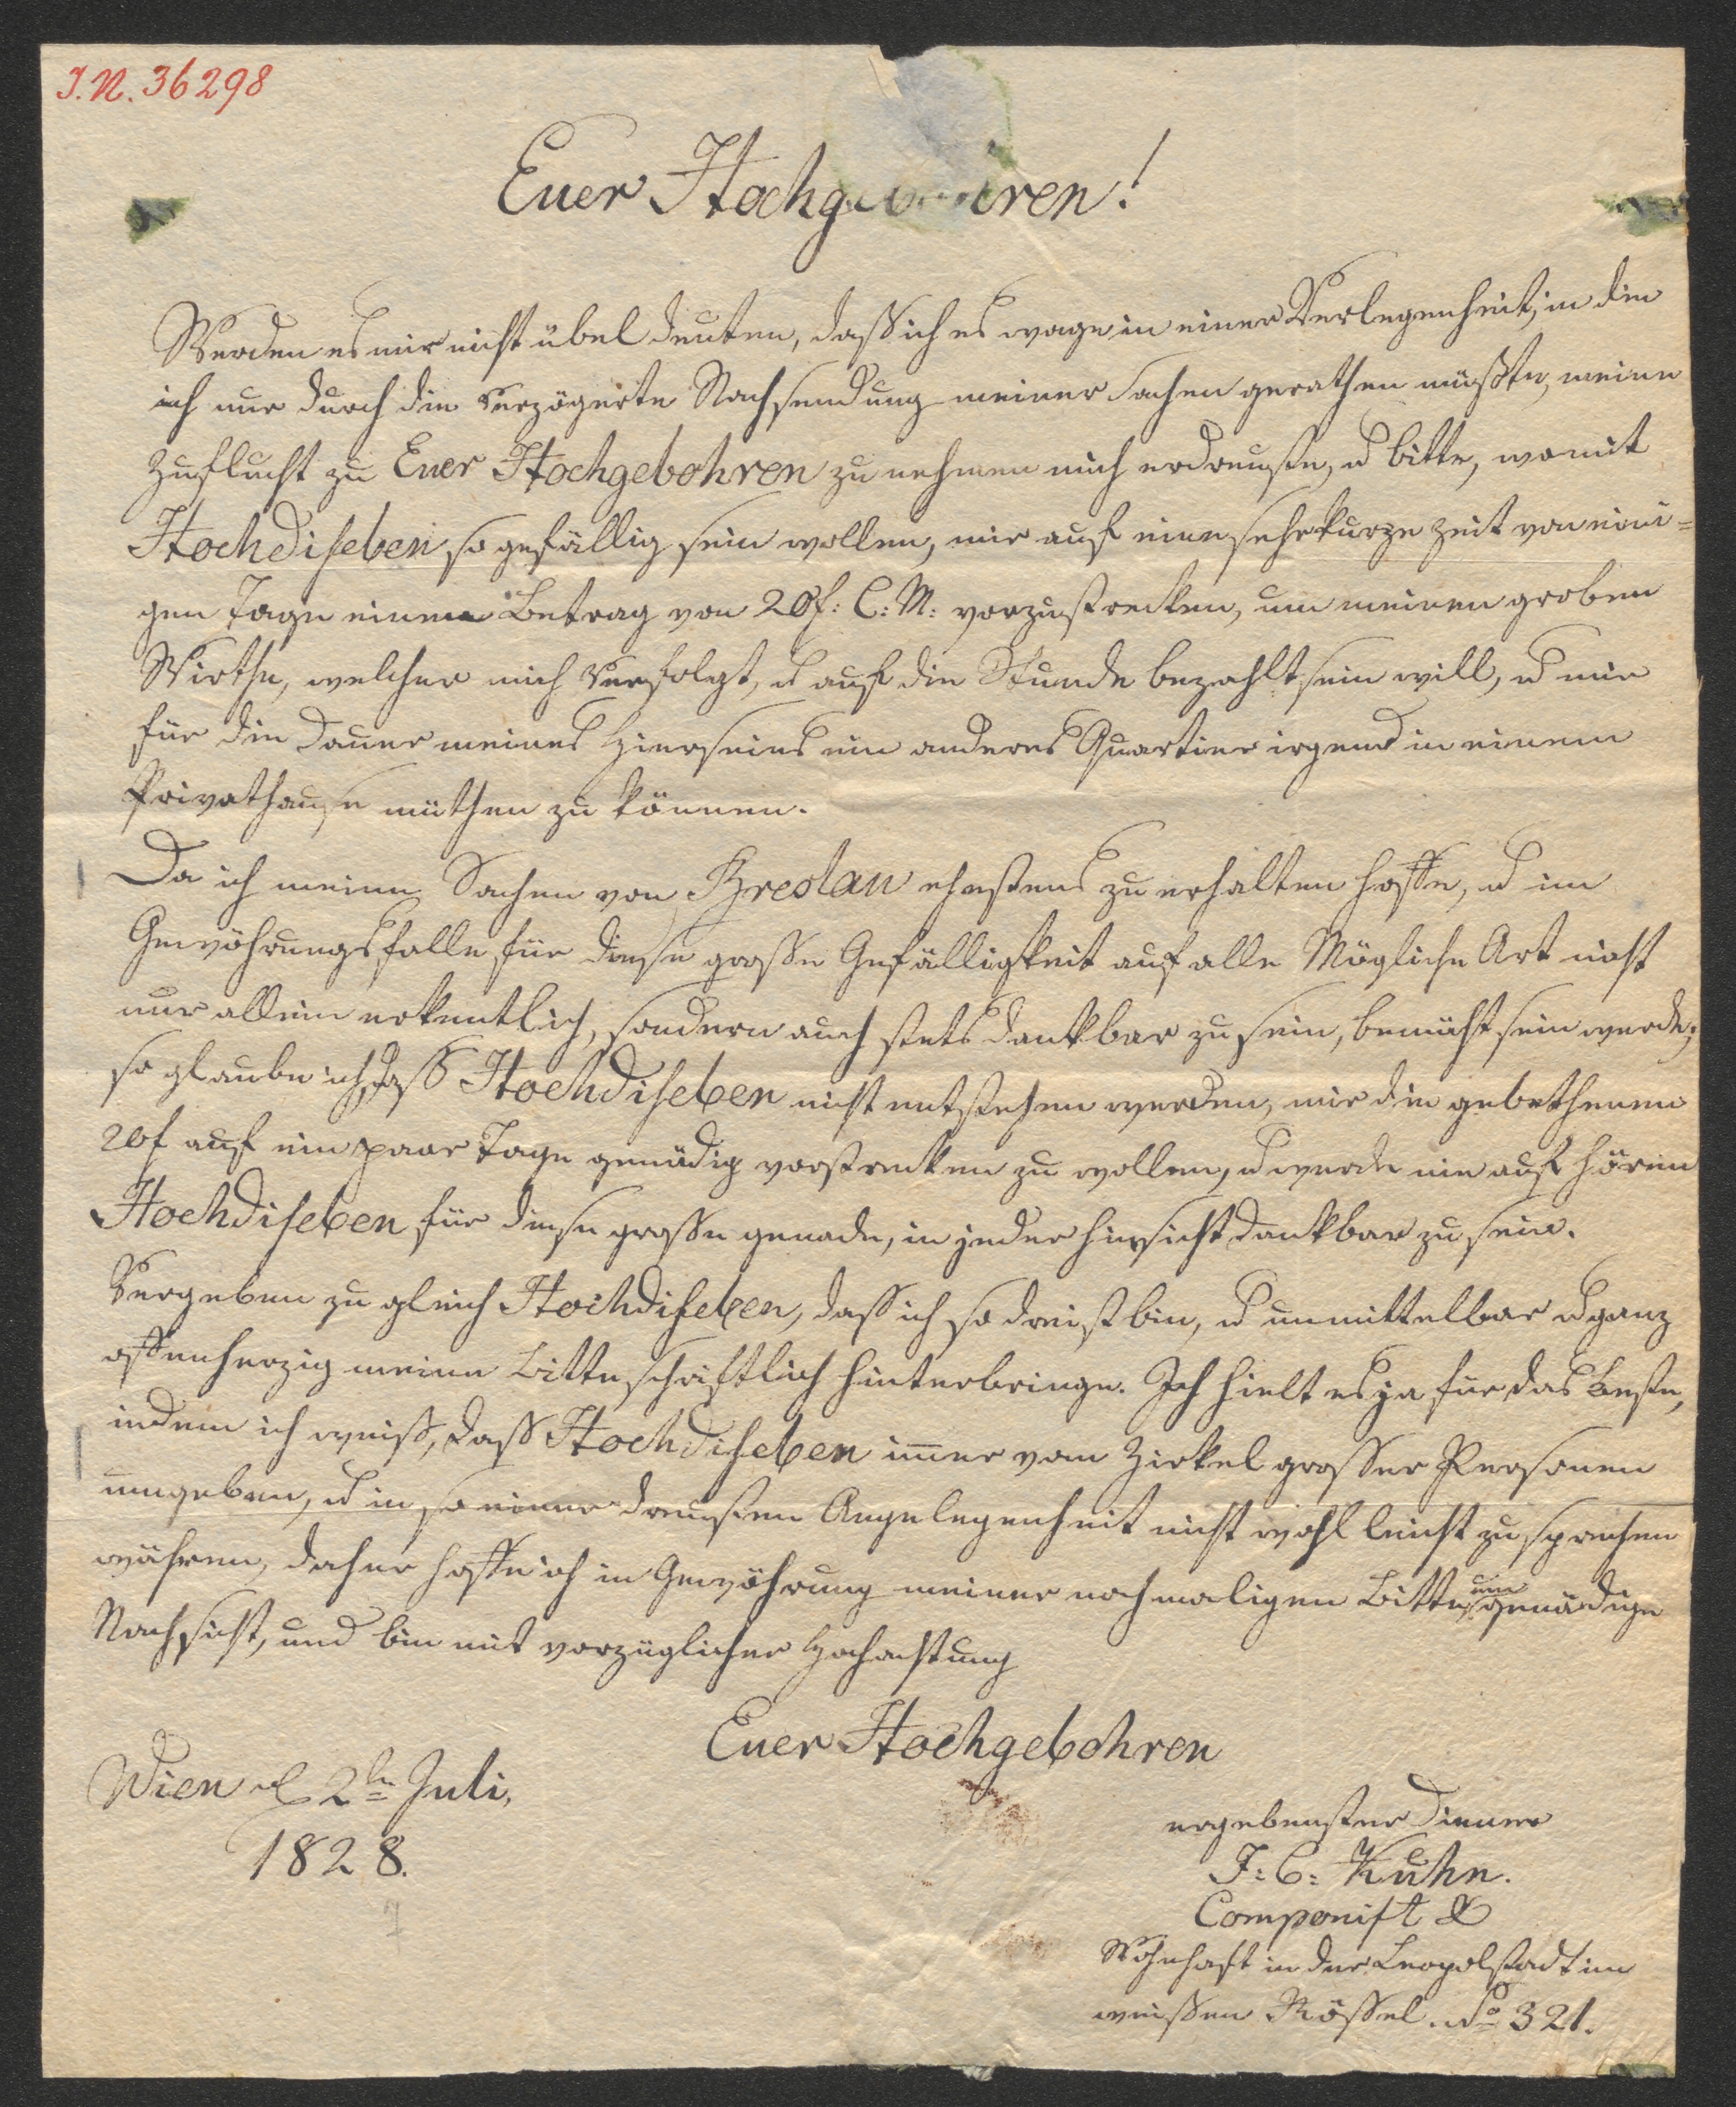 J. N. 36298
Euer Hochgebohren!
Werden es mir nicht übel deuten, daß ich es wage in einer Verlegenheit, in die
ich nur durch die verzögerte Nachsendung meiner Sachen gerathen müßte, meine
Zuflucht zu Euer Hochgebohren zu nehmen mich erdreuste, u bitte, womit
Hochdiselben so gefällig sein wollen, mir auf eine sehr kurze Zeit von eini=
gen Tage einen Betrag von 20f: C: M: vorzustrecken, um meinen groben
Wirthe, welcher mich verfolgt, u auf die Stunde bezahlt sein will, u mir
für die Dauer meines Hierseins ein anderes Quartier irgend in einem
Privathause miethen zu können.
Da ich meine Sachen von Breslau ehestens zu erhalten hoffe, u im
Gewährungsfalle für diese große Gefälligkeit auf alle Mögliche Art nicht
nur allein erkentlich, sondern auch stets dankbar zu sein, bemüht sein werde;
so glaube ich, daß Hochdiselben nicht entstehen werden, mir die gebethenen
20f auf ein paar Tage genädig vorstrecken zu wollen, u werde nie auf hören
Hochdiselben für diese große genade, in jeder hinsicht dankbar zu sein.
Vergeben zu gleich Hochdiselben, daß ich so dreist bin, u unmittelbar u ganz
offenherzig meine Bitte schriftlich hinterbringe. Ich hielt es ja für das Beste,
indem ich weiß, daß Hochdiselben im̅er vom Zirkel großer Personen
umgeben, u in so einer dreusten Angelegenheit nicht wohl leicht zu sprechen
währen, daher hoffe ich in Gewährung meiner nochmaligen Bitte, um genädige
Nachsicht, und bin mit vorzüglicher Hochachtung
Euer Hochgebohren
Wien d 2ten Juli,
1828.
ergebenster Diener
J: C: Kuhn.
Componist
Wohnhaft in der Leopolstadt im
weißen Rößel. No 321.